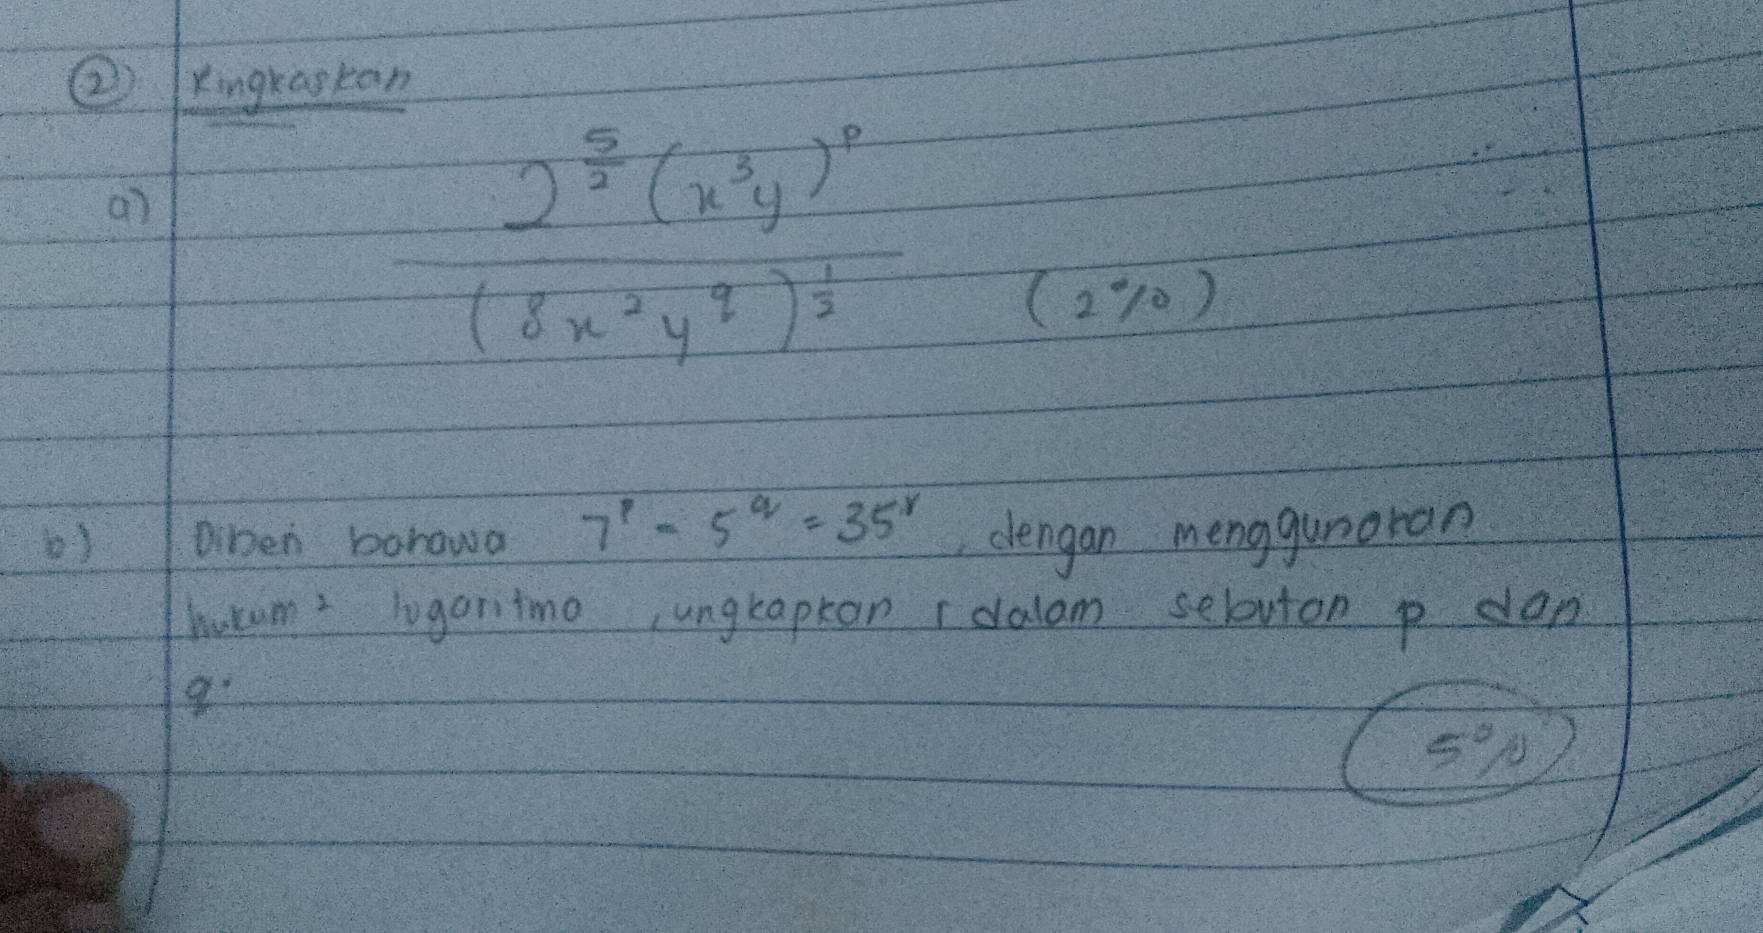 ② Ringkaskan
a) 2^(5/2) (x³y)^p
(8x²y^q)^(1/2) (2%)
b) Diberi bahawa 7^p = 5^q = 35^r, dengan menggunakan
hukum² logaritma, ungkapkan r dalam sebutan p dan
q.
5%